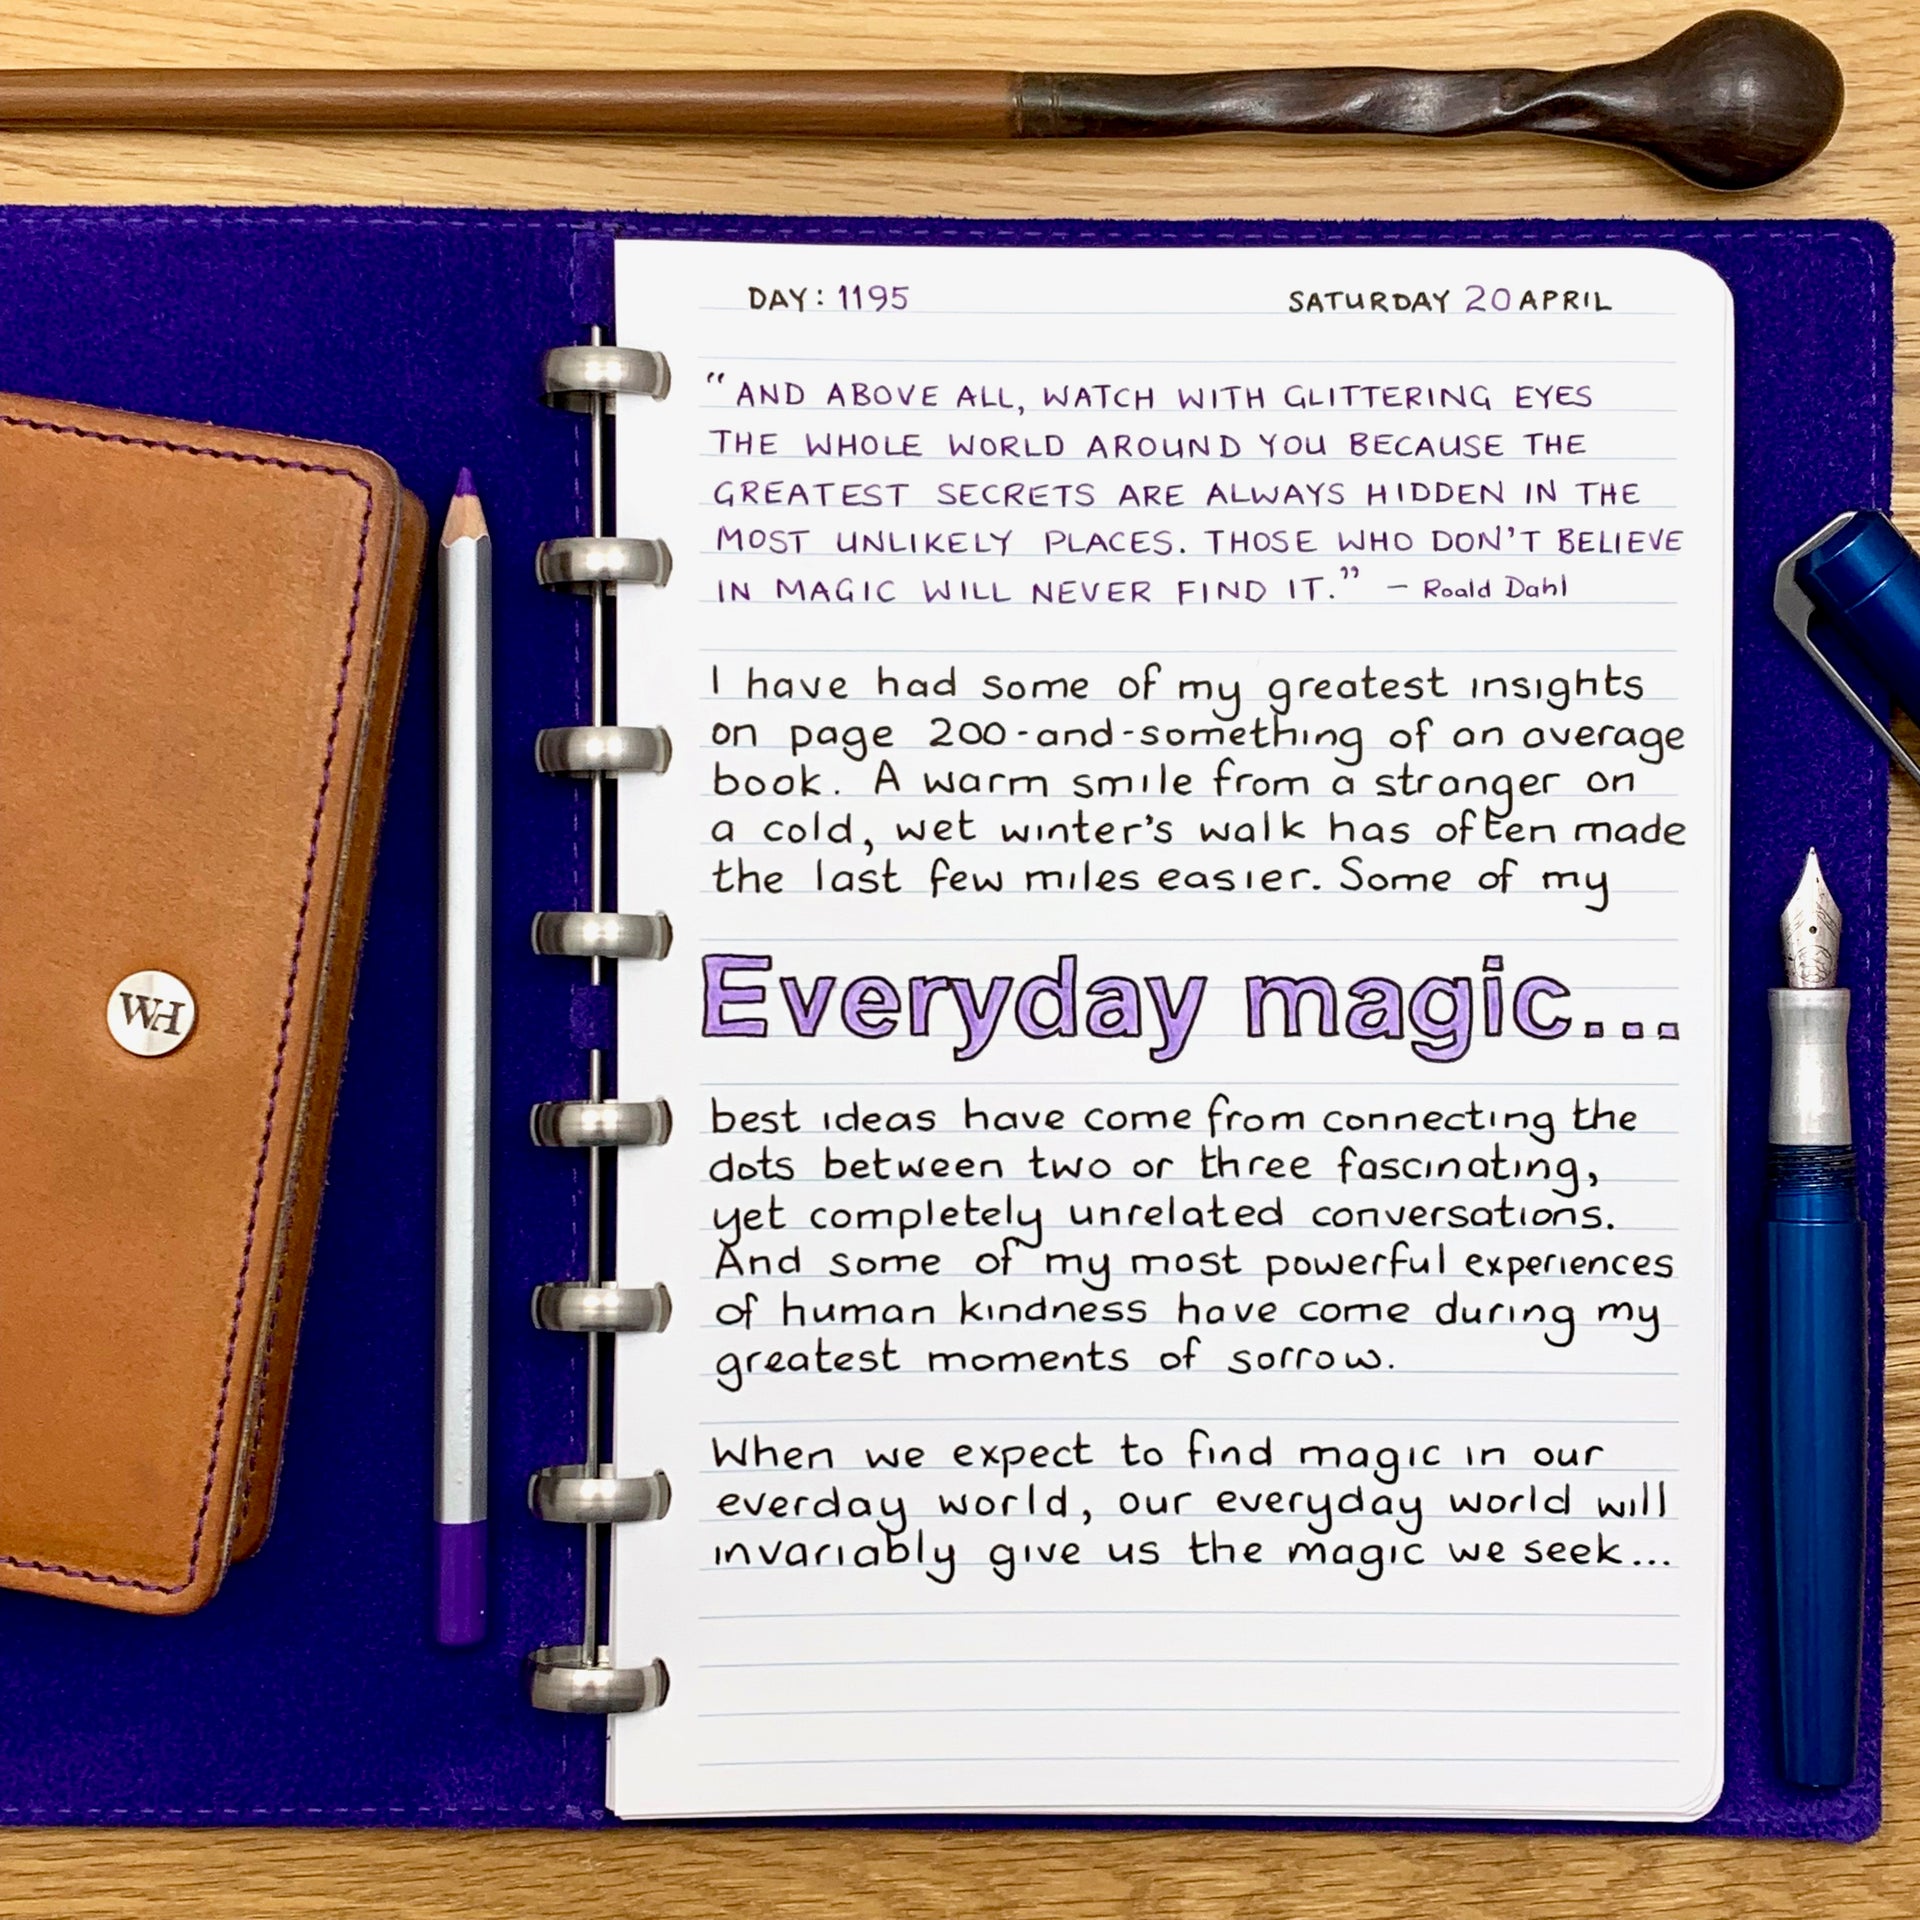 DAY: 1195 SATURDAY 20 APRIL
"AND ABOVE ALL, WATCH WITH GLITTERING EYES
THE WHOLE WORLD AROUND YOU BECAUSE THE
GREATEST SECRETS ARE ALWAYS HIDDEN IN THE
MOST UNLIKELY PLACES. THOSE WHO DON'T BELIEVE
IN MAGIC WILL NEVER FIND IT." – Roald Dahl
I have had some of my greatest insights
on page 200-and-something of an average
book. A warm smile from a stranger on
a cold, wet winter's walk has often made
the last few miles easier. Some of my
Everyday magic...
best ideas have come from connecting the
dots between two or three fascinating,
yet completely unrelated conversations.
And some of my most powerful experiences
of human kindness have come during my
greatest moments of sorrow.
When we expect to find magic in our
everday world, our everyday world will
invariably give us the magic we seek...
WH